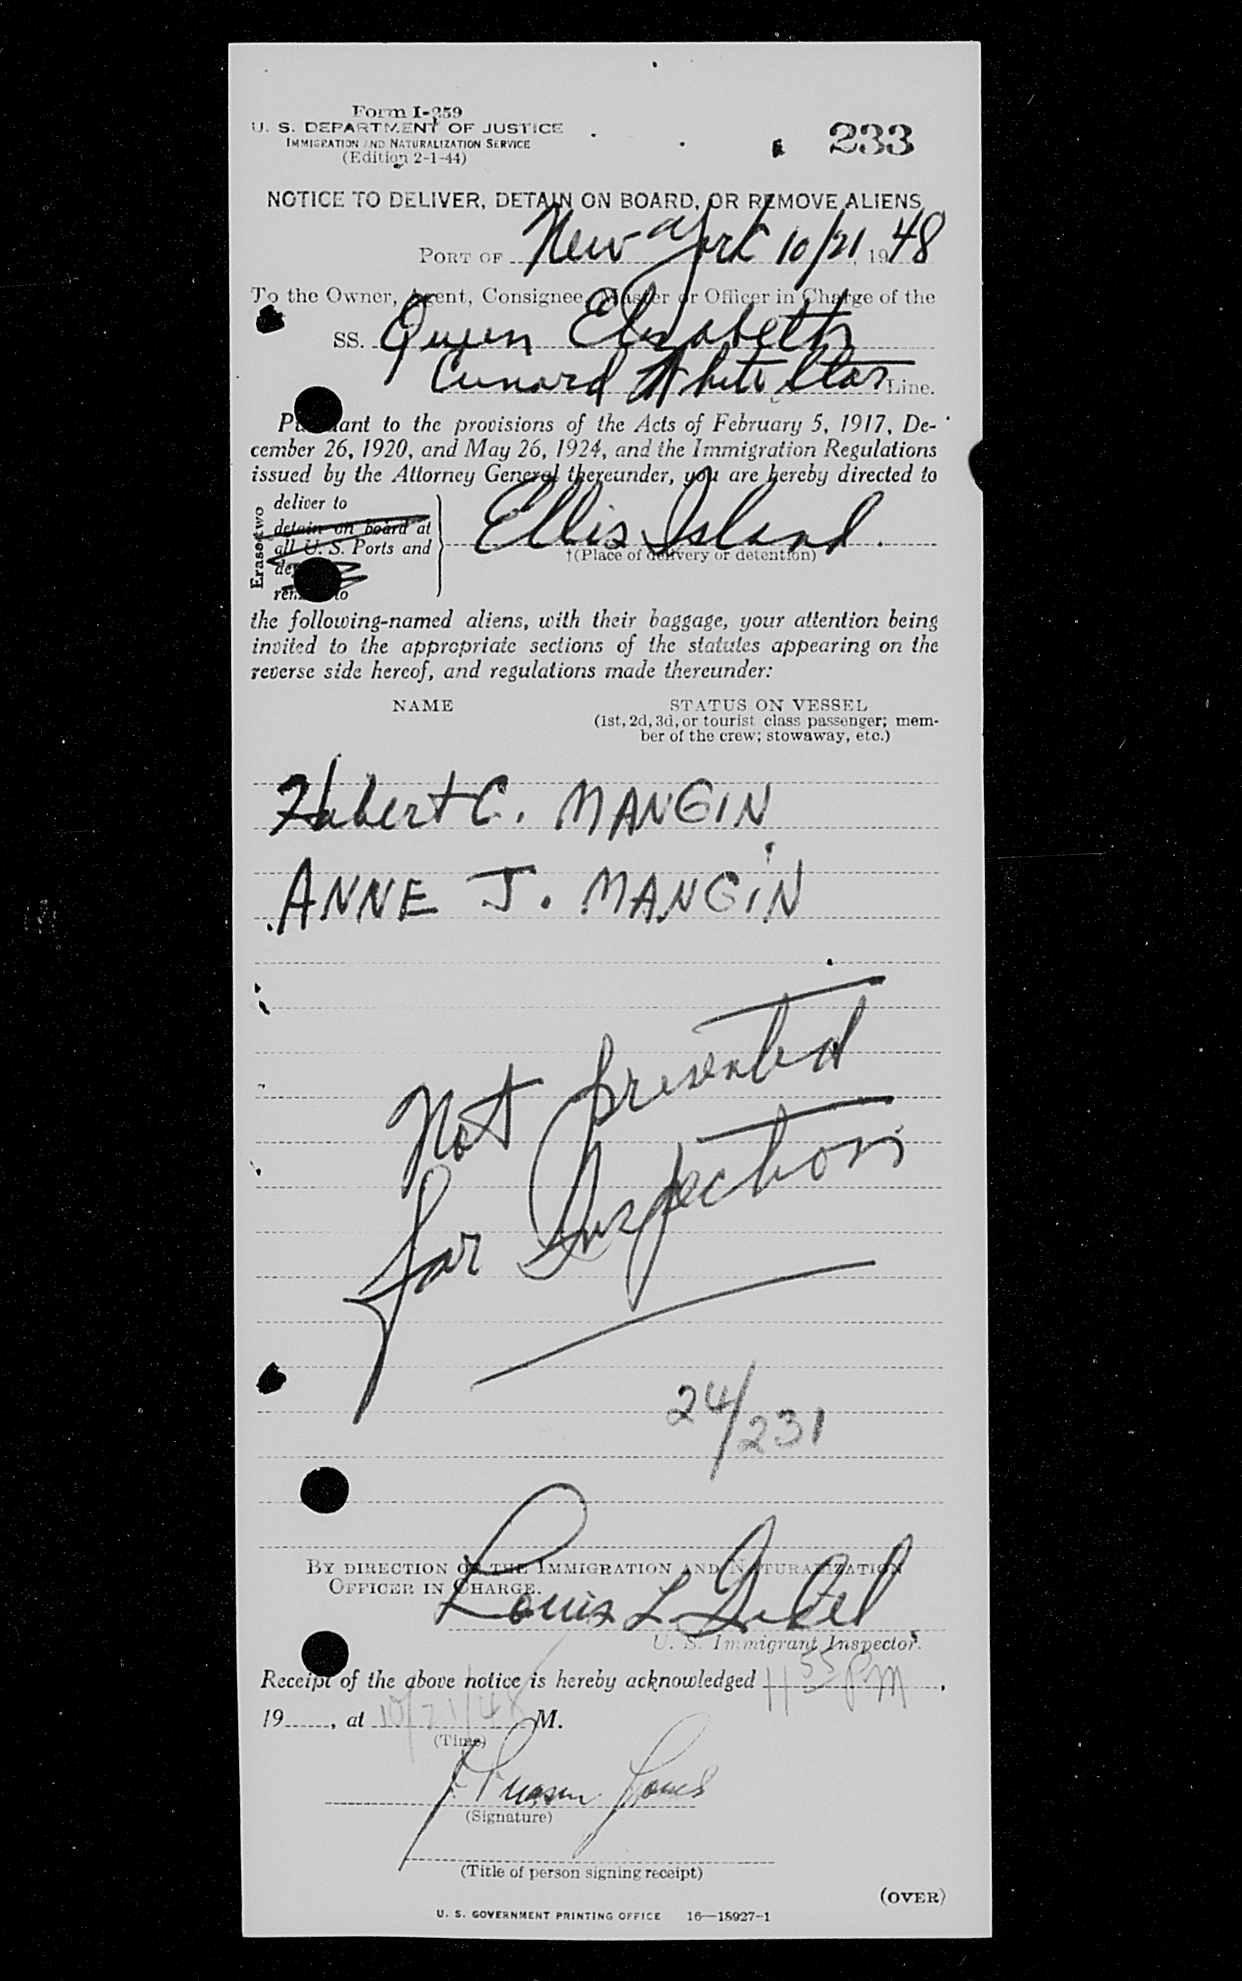 Form I-259
U. S. DEPARTMENT OF JUSTICE
IMMIGRATION AND NATURALIZATION SERVICE
(Edition 2-1-44)
233
NOTICE TO DELIVER, DETAIN ON BOARD, OR REMOVE ALIENS
PORT OF New York 10/21, 1948
To the Owner, Agent, Consignee, Master or Officer in Charge of the
SS. Queen Elizabeth
Cunard White Star Line.
Pursuant to the provisions of the Acts of February 5, 1917, De-
cember 26, 1920, and May 26, 1924, and the Immigration Regulations
issued by the Attorney General thereunder, you are hereby directed to
Erase two
deliver to
detain on board at
all U. S. Ports and
Ellis Island.
†(Place of delivery or detention)
the following-named aliens, with their baggage, your attention being
invited to the appropriate sections of the statutes appearing on the
reverse side hereof, and regulations made thereunder:
NAME STATUS ON VESSEL
(1st, 2d, 3d, or tourist class passenger; mem-
ber of the crew; stowaway, etc.)
Hubert C. MANGIN
ANNE J. MANGIN
Not presented
for Inspection
24/231
BY DIRECTION OF THE IMMIGRATION AND NATURALIZATION
OFFICER IN CHARGE.
Louis L.
U. S. Immigrant Inspector.
Receipt of the above notice is hereby acknowledged 11 55 PM,
19, at 10/21/48 M.
(Time)
(Signature)
(Title of person signing receipt)
(OVER)
U. S. GOVERNMENT PRINTING OFFICE 16—18927-1